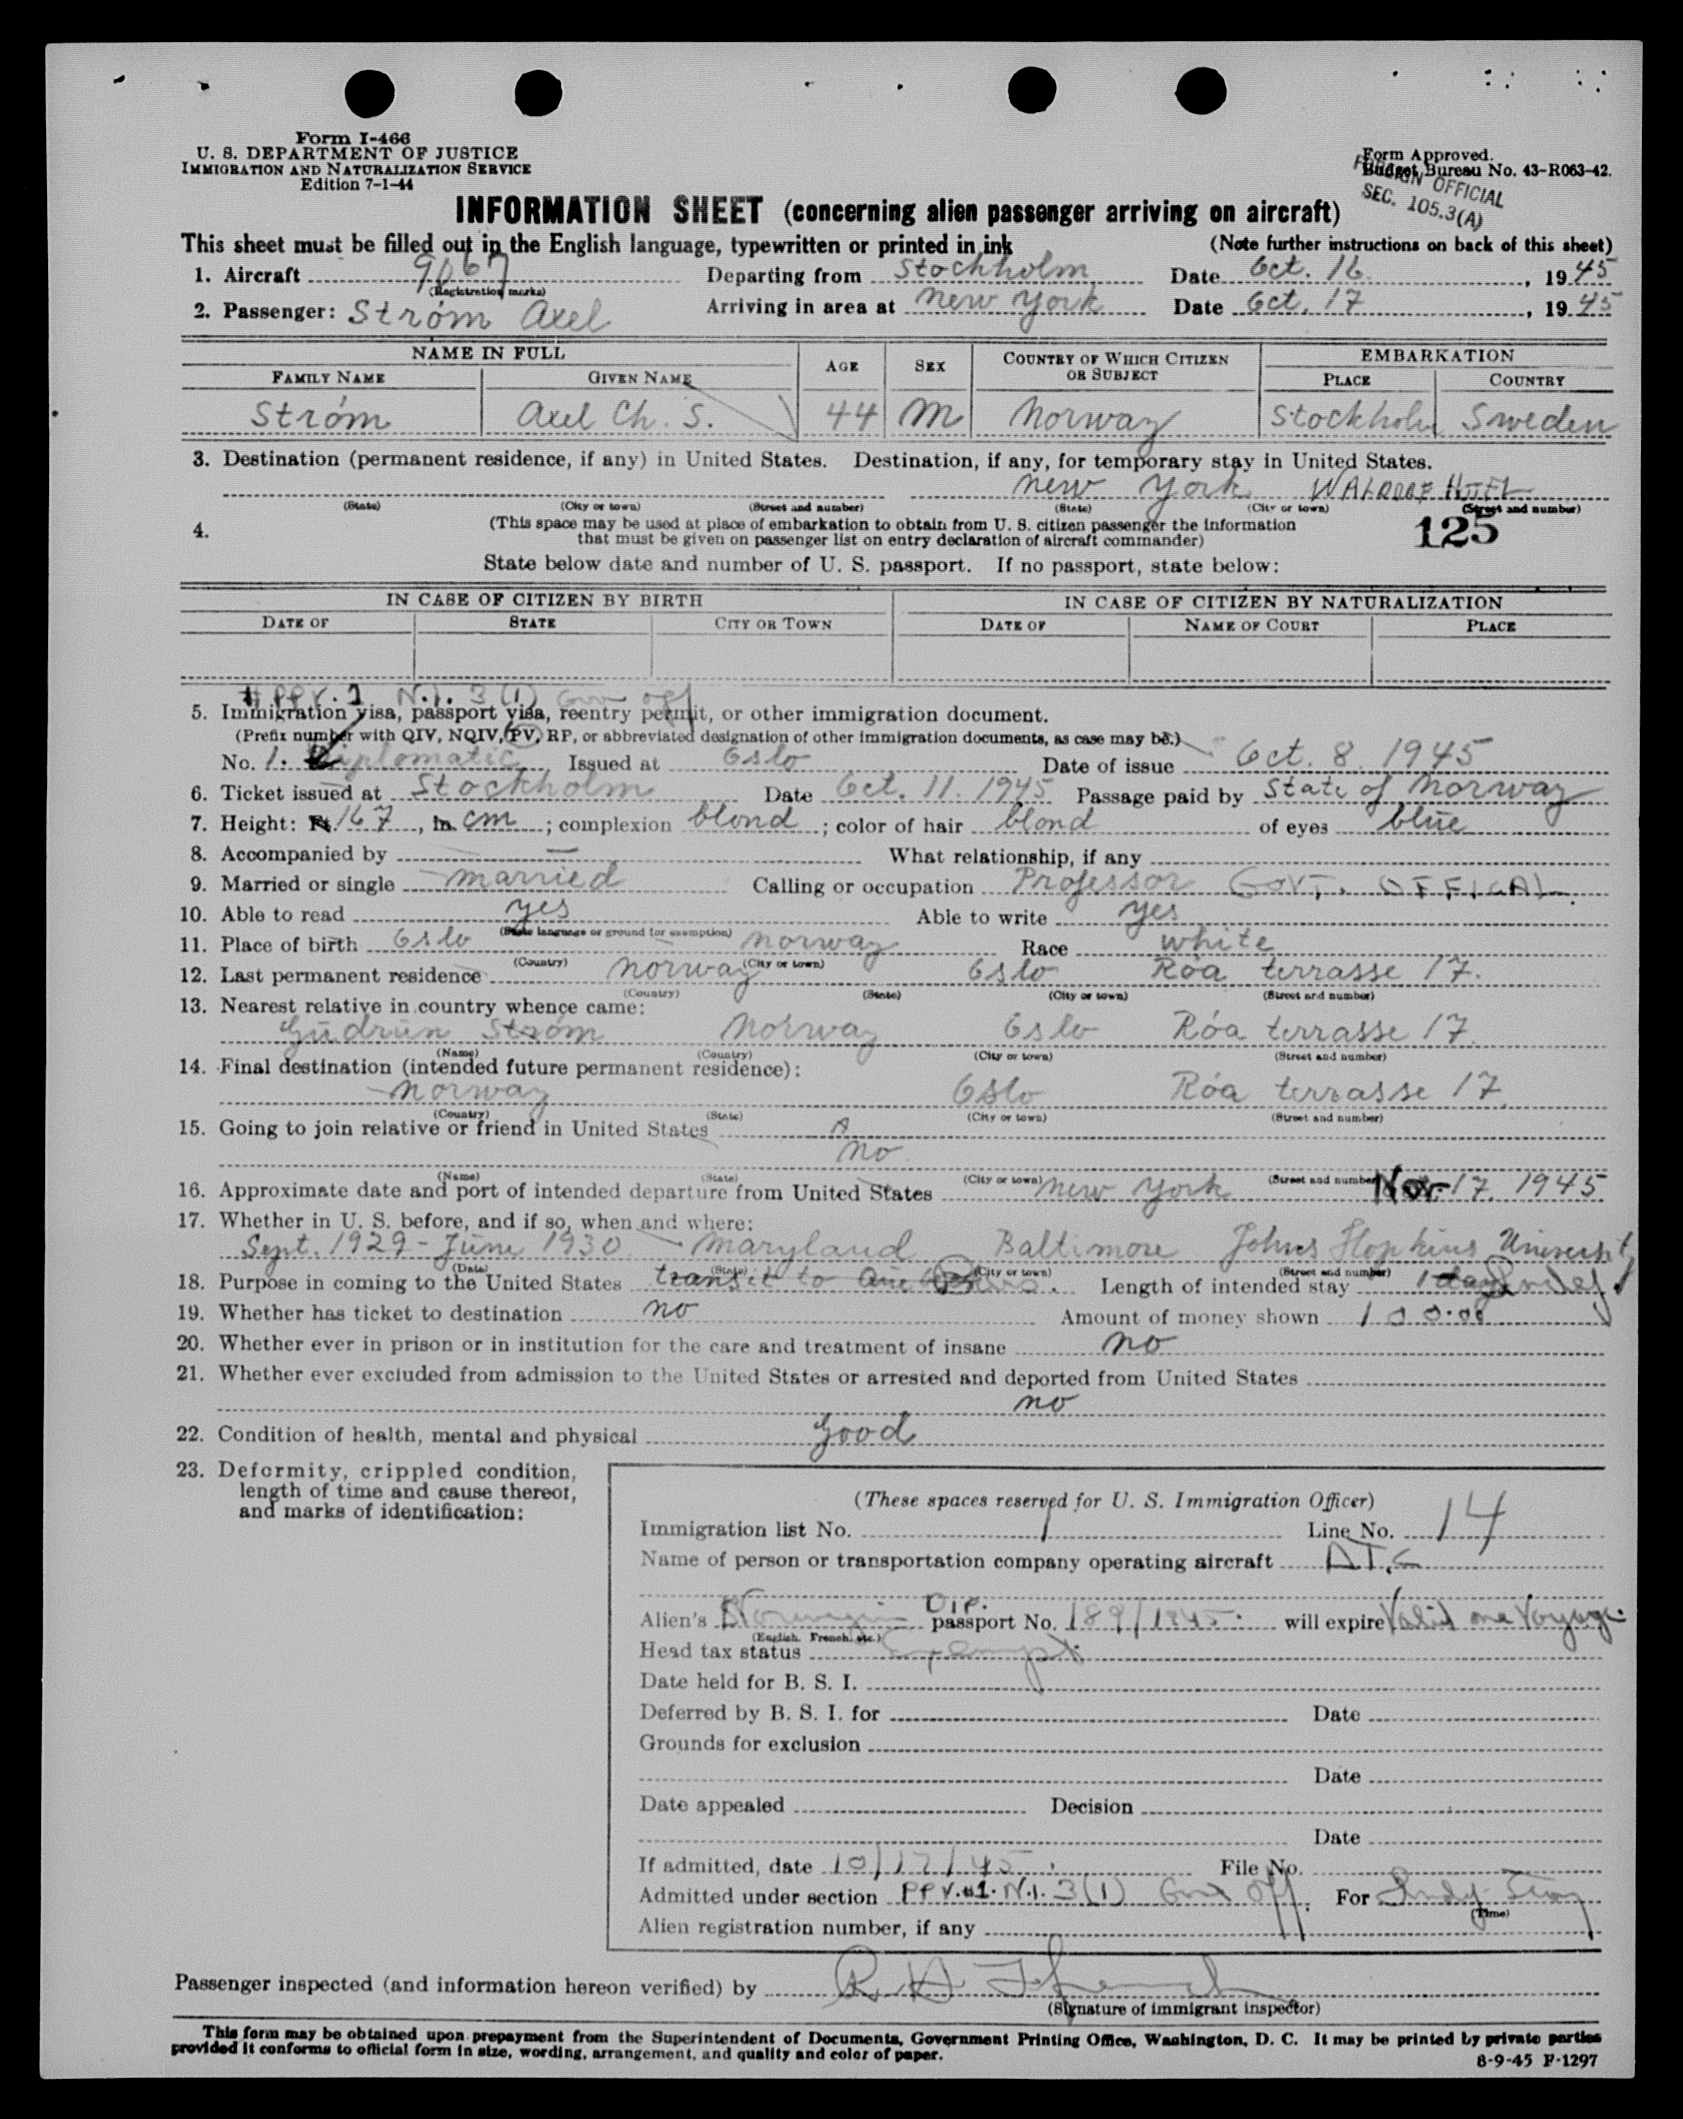 Form I-466
U. S. DEPARTMENT OF JUSTICE
IMMIGRATION AND NATURALIZATION SERVICE
Edition 7-1-44
Form Approved.
Budget Bureau No. 43-R063-42.
FOREIGN OFFICIAL
SEC. 105.3(A)
INFORMATION SHEET (concerning alien passenger arriving on aircraft)
This sheet must be filled out in the English language, typewritten or printed in ink (Note further instructions on back of this sheet)
1. Aircraft 9067 Departing from Stockholm Date Oct. 16. , 19 45
(Registration marks)
2. Passenger: Strøm Axel Arriving in area at New York Date Oct. 17 , 19 45
NAME IN FULL AGE SEX COUNTRY OF WHICH CITIZEN OR SUBJECT EMBARKATION
FAMILY NAME GIVEN NAME PLACE COUNTRY
Strøm Axel Ch. S. 44 M Norway Stockholm Sweden
3. Destination (permanent residence, if any) in United States. Destination, if any, for temporary stay in United States.
New York WALDORF HOTEL
(State) (City or town) (Street and number) (State) (City or town) (Street and number)
4. (This space may be used at place of embarkation to obtain from U. S. citizen passenger the information
that must be given on passenger list on entry declaration of aircraft commander)
125
State below date and number of U. S. passport. If no passport, state below:
IN CASE OF CITIZEN BY BIRTH IN CASE OF CITIZEN BY NATURALIZATION
DATE OF STATE CITY OR TOWN DATE OF NAME OF COURT PLACE
PPV. 1 N.I. 3 (1) Gov off
5. Immigration visa, passport visa, reentry permit, or other immigration document.
(Prefix number with QIV, NQIV, PV, RP, or abbreviated designation of other immigration documents, as case may be.)
No. 1. Diplomatic Issued at Oslo Date of issue Oct. 8. 1945
6. Ticket issued at Stockholm Date Oct. 11. 1945 Passage paid by State of Norway
7. Height: Ft. 167 , in. cm ; complexion blond ; color of hair blond of eyes blue
8. Accompanied by — What relationship, if any
9. Married or single married Calling or occupation Professor GOVT. OFFICIAL
10. Able to read yes Able to write yes
(State language or ground for exemption)
11. Place of birth Oslo Norway Race white
(Country) (City or town)
12. Last permanent residence Norway Oslo Röa terrasse 17.
(Country) (State) (City or town) (Street and number)
13. Nearest relative in country whence came:
Gudrun Strøm Norway Oslo Röa terrasse 17.
(Name) (Country) (City or town) (Street and number)
14. Final destination (intended future permanent residence):
Norway Oslo Röa terrasse 17.
(Country) (State) (City or town) (Street and number)
15. Going to join relative or friend in United States
no
(Name) (State) (City or town) (Street and number)
16. Approximate date and port of intended departure from United States New York Nov- 17. 1945
17. Whether in U. S. before, and if so, when and where:
Sept. 1929 - June 1930 - Maryland Baltimore Johns Hopkins University
(Date) (State) (City or town) (Street and number)
18. Purpose in coming to the United States transit to Length of intended stay 1 day
19. Whether has ticket to destination no Amount of money shown 100.00
20. Whether ever in prison or in institution for the care and treatment of insane no
21. Whether ever excluded from admission to the United States or arrested and deported from United States
no
22. Condition of health, mental and physical good
23. Deformity, crippled condition,
length of time and cause thereof,
and marks of identification:
(These spaces reserved for U. S. Immigration Officer)
Immigration list No. 1 Line No. 14
Name of person or transportation company operating aircraft A.T.C
Alien's Norwegian DIP. passport No. 189/1945. will expire Valid one Voyage.
(English, French, etc.)
Head tax status Exempt
Date held for B. S. I.
Deferred by B. S. I. for Date
Grounds for exclusion
Date
Date appealed Decision
Date
If admitted, date 10/17/45 File No.
Admitted under section PPV.#1. N.I. 3(1) Gov Off. For
(Time)
Alien registration number, if any
Passenger inspected (and information hereon verified) by
(Signature of immigrant inspector)
This form may be obtained upon prepayment from the Superintendent of Documents, Government Printing Office, Washington, D. C. It may be printed by private parties
provided it conforms to official form in size, wording, arrangement, and quality and color of paper.
8-9-45 F-1297